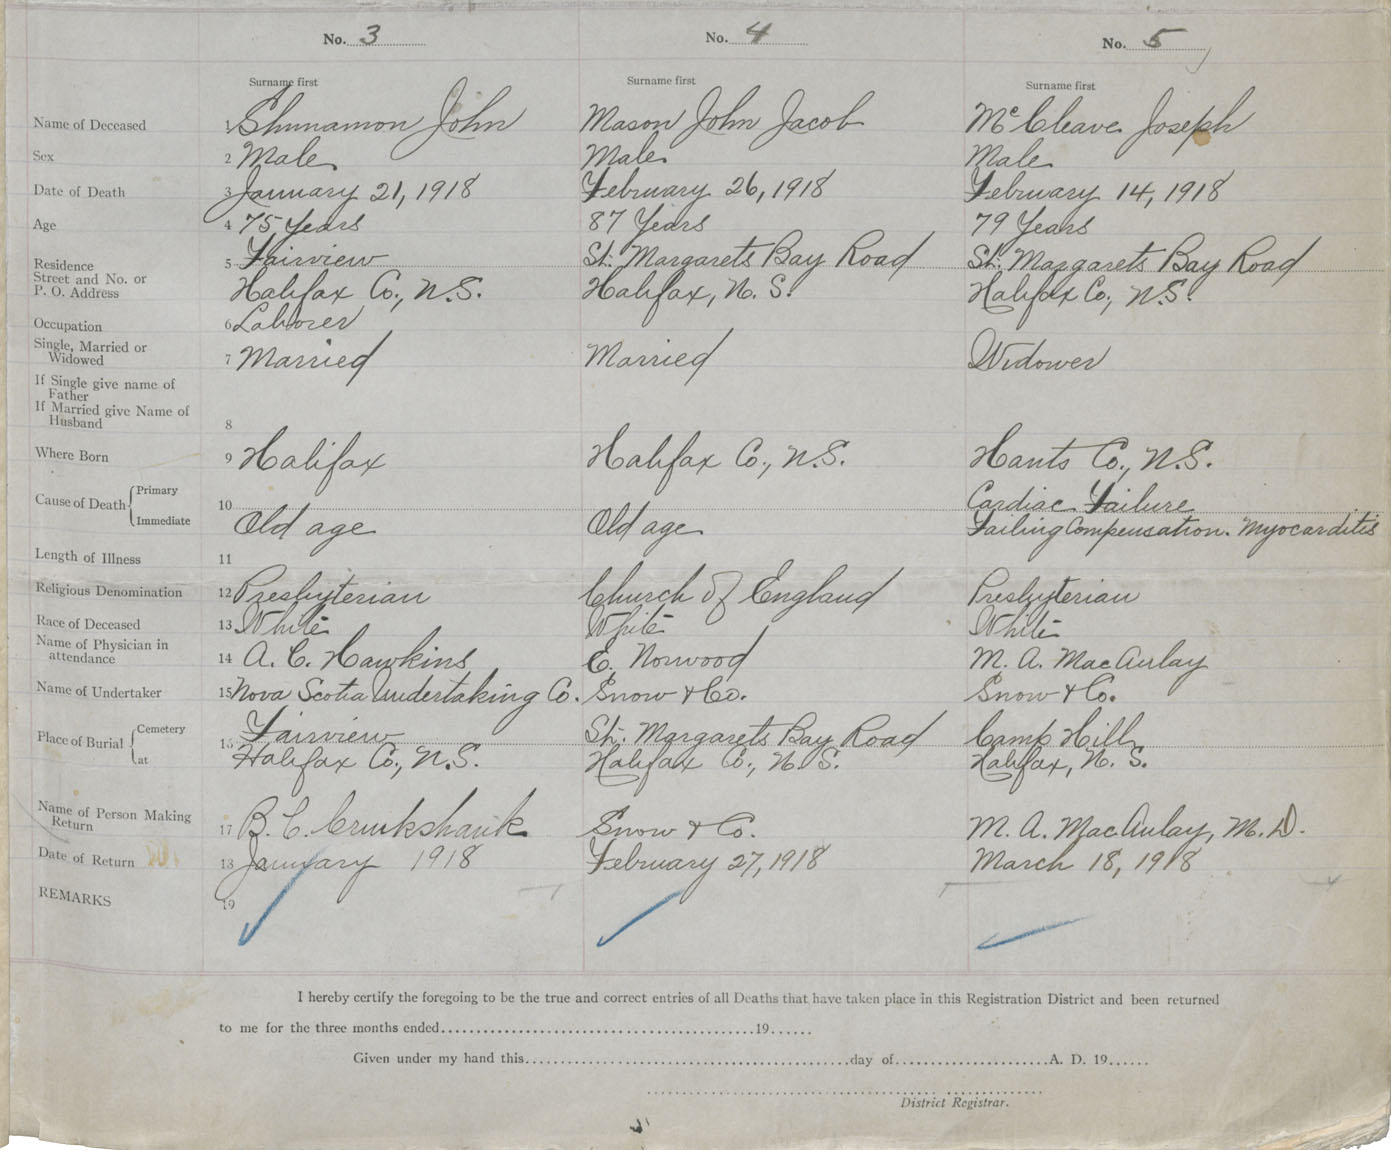 No. 3 No. 4 No. 5
Surname first Surname first Surname first
Name of Deceased 1 Shunamon John Mason John Jacob McCleave Joseph
Sex 2 Male Male Male
Date of Death 3 January 21, 1918 February 26, 1918 February 14, 1918
Age 4 75 Years 87 Years 79 Years
Residence 5 Fairview St. Margarets Bay Road St. Margarets Bay Road
Street and No. or
P. O. Address Halifax Co., N.S. Halifax, N. S. Halifax Co., N.S.
Occupation 6 Laborer
Single, Married or
Widowed 7 Married Married Widower
If Single give name of
Father
If Married give Name of
Husband 8
Where Born 9 Halifax Halifax Co., N.S. Hants Co., N.S.
Cause of Death Primary 10 Cardiac Failure
Immediate Old age Old age Failing Compensation. Myocarditis
Length of Illness 11
Religious Denomination 12 Presbyterian Church of England Presbyterian
Race of Deceased 13 White White White
Name of Physician in
attendance 14 A. C. Hawkins E. Norwood M. A. MacAulay
Name of Undertaker 15 Nova Scotia Undertaking Co. Snow & Co. Snow & Co.
Place of Burial Cemetery 15 Fairview St. Margarets Bay Road Camp Hill
at Halifax Co., N.S. Halifax Co., N. S. Halifax, N. S.
Name of Person Making
Return 17 B. C. Cruikshank Snow & Co. M. A. MacAulay, M.D.
Date of Return 18 January 1918 February 27, 1918 March 18, 1918
REMARKS 19
I hereby certify the foregoing to be the true and correct entries of all Deaths that have taken place in this Registration District and been returned
to me for the three months ended 19
Given under my hand this day of A. D. 19
District Registrar.